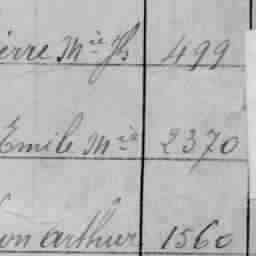 ierre Mie fls 499
Emile Mie 2370
on arthur 1560